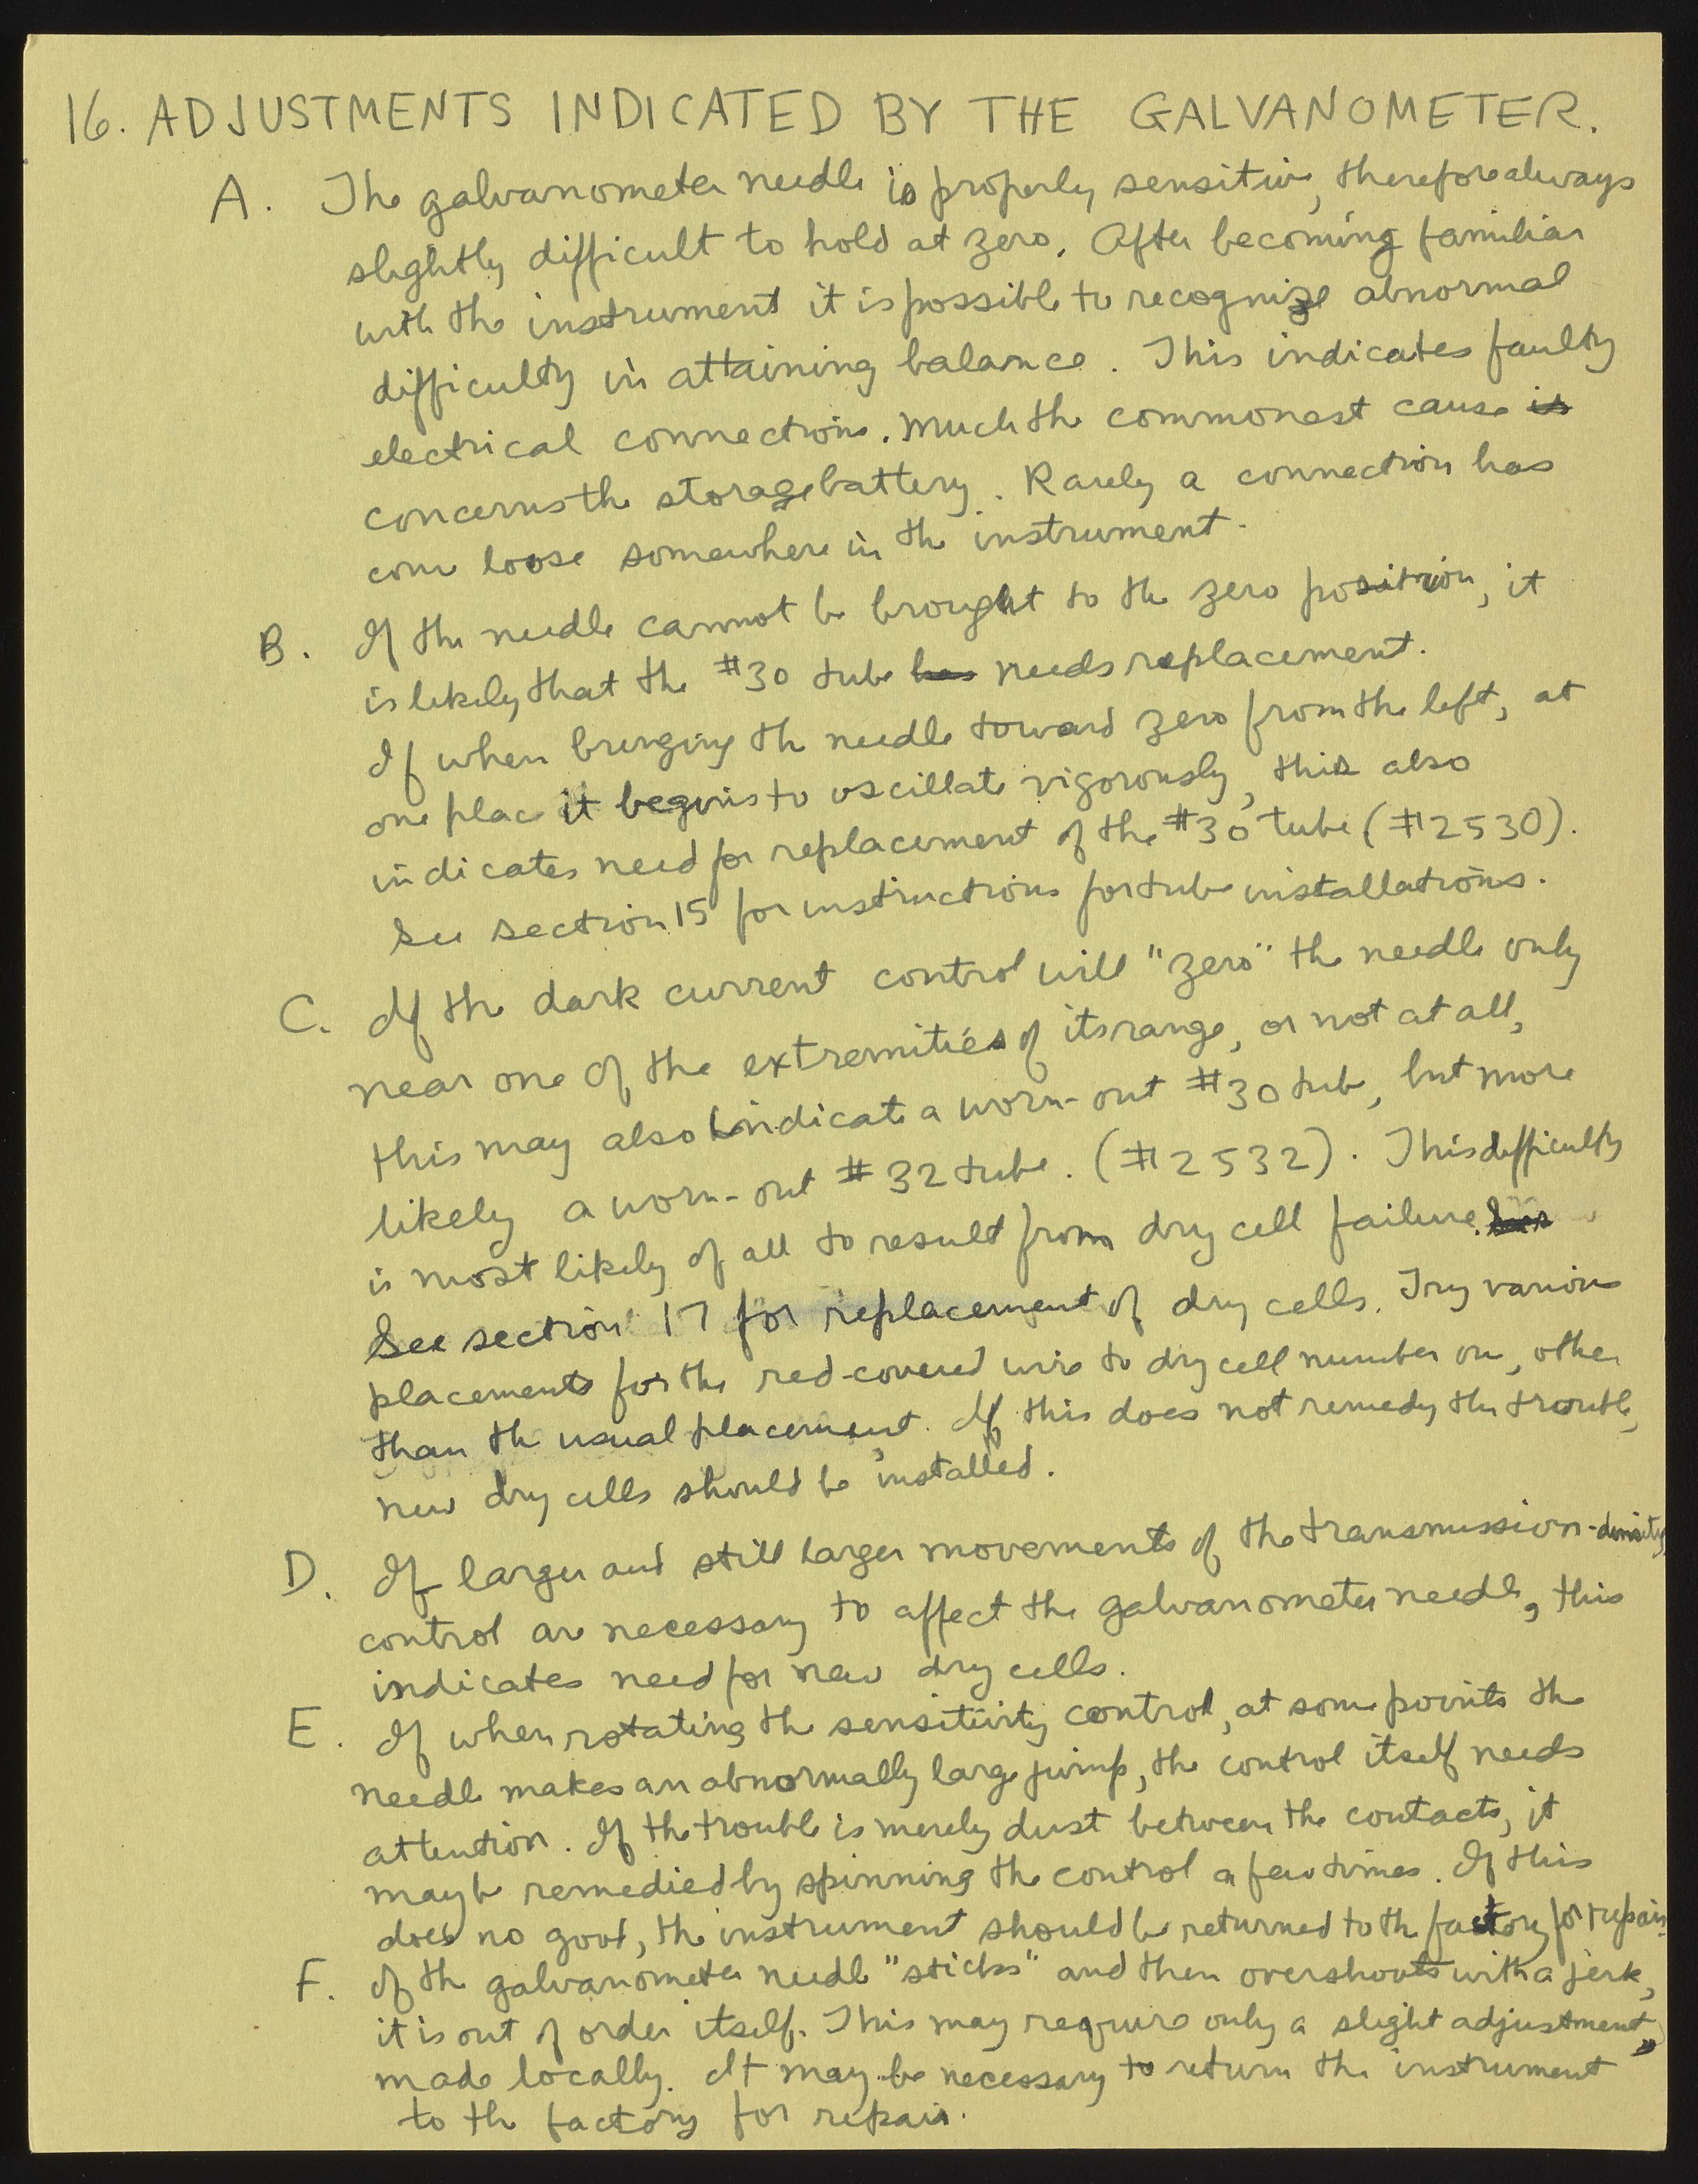 16. ADJUSTMENTS INDICATED BY THE GALVANOMETER.
A. The galvanometer needle is properly sensitive, therefore always
slightly difficult to hold at zero. After becoming familiar
with the instrument it is possible to recognize abnormal
difficulty in attaining balance. This indicates faulty
electrical connections. Much the commonest cause is
concerns the storage battery. Rarely a connection has
come loose somewhere in the instrument.
B. If the needle cannot be brought to the zero position, it
is likely that the #30 tube has needs replacement.
If when bringing the needle toward zero from the left, at
one place it begins to oscillate vigorously, this also
indicates need for replacement of the #30 tube (#2530).
See section 15 for instructions for tube installations.
C. If the dark current control will "zero" the needle only
near one of the extremities of its range, or not at all,
this may also indicate a worn-out #30 tube, but more
likely a worn-out #32 tube. (#2532). This difficulty
is most likely of all to result from dry cell failure.
See section 17 for replacement of dry cells. Try various
placements for the red-covered wire to dry cell number one, other
than the usual placement. If this does not remedy the trouble,
new dry cells should be installed.
D. If larger and still larger movements of the transmission-density
control are necessary to affect the galvanometer needle, this
indicates need for new dry cells.
E. If when rotating the sensitivity control, at some points the
needle makes an abnormally large jump, the control itself needs
attention. If the trouble is merely dust between the contacts, it
may be remedied by spinning the control a few times. If this
does no good, the instrument should be returned to the factory for repair.
F. If the galvanometer needle "sticks" and then overshoots with a jerk,
it is out of order itself. This may require only a slight adjustment,
made locally. It may be necessary to return the instrument
to the factory for repair.